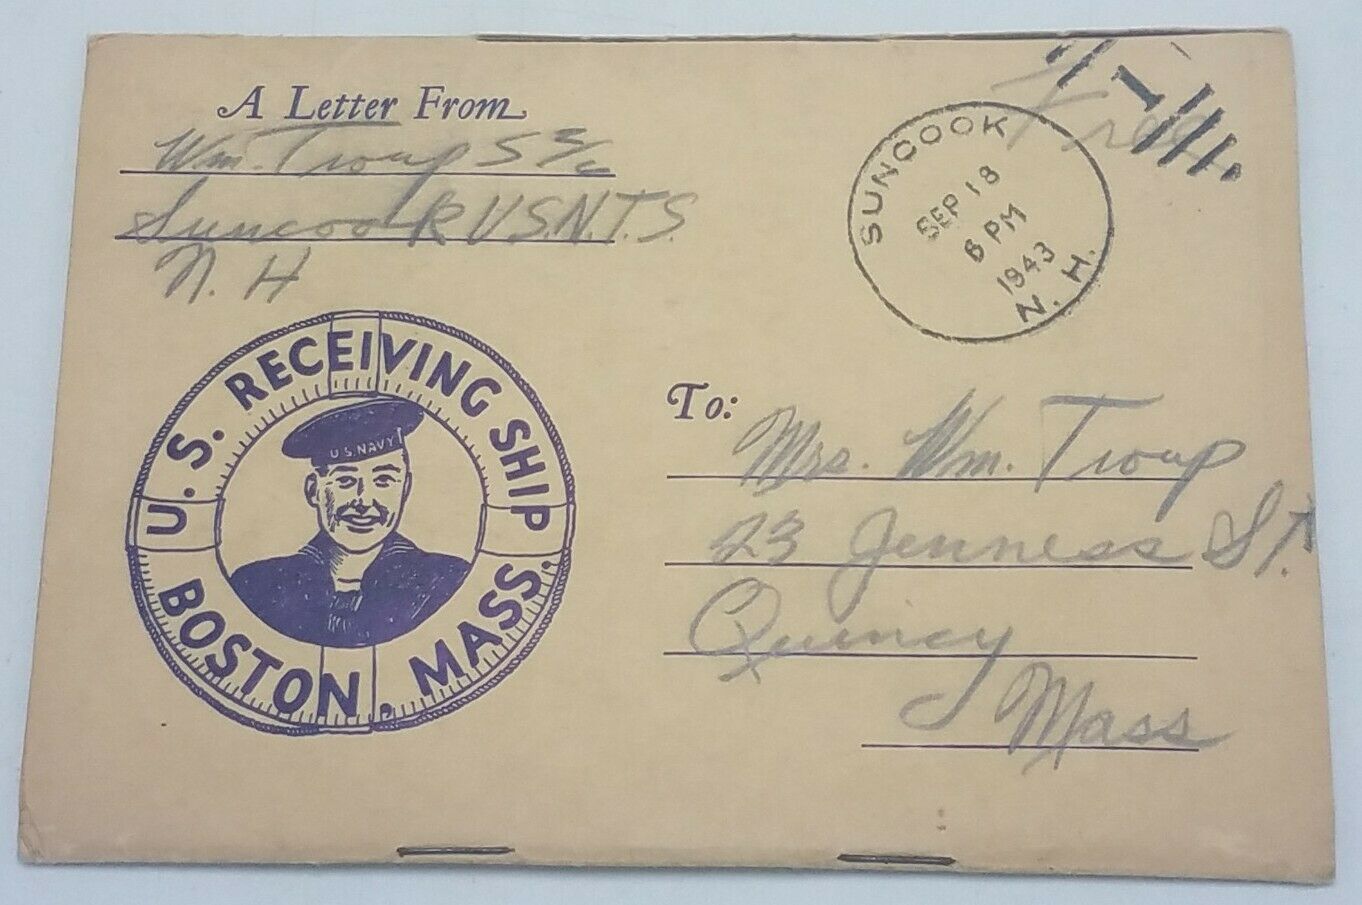 A Letter From
Wm. Troup S 2/c
Suncook U.S.N.T.S.
N. H
Free
SUNCOOK
SEP 18
6 PM
1943
N. H.
1
U. S. RECEIVING SHIP
U.S. NAVY
BOSTON, MASS.
To:
Mrs. Wm. Troup
23 Jenness St.
Quincy
Mass